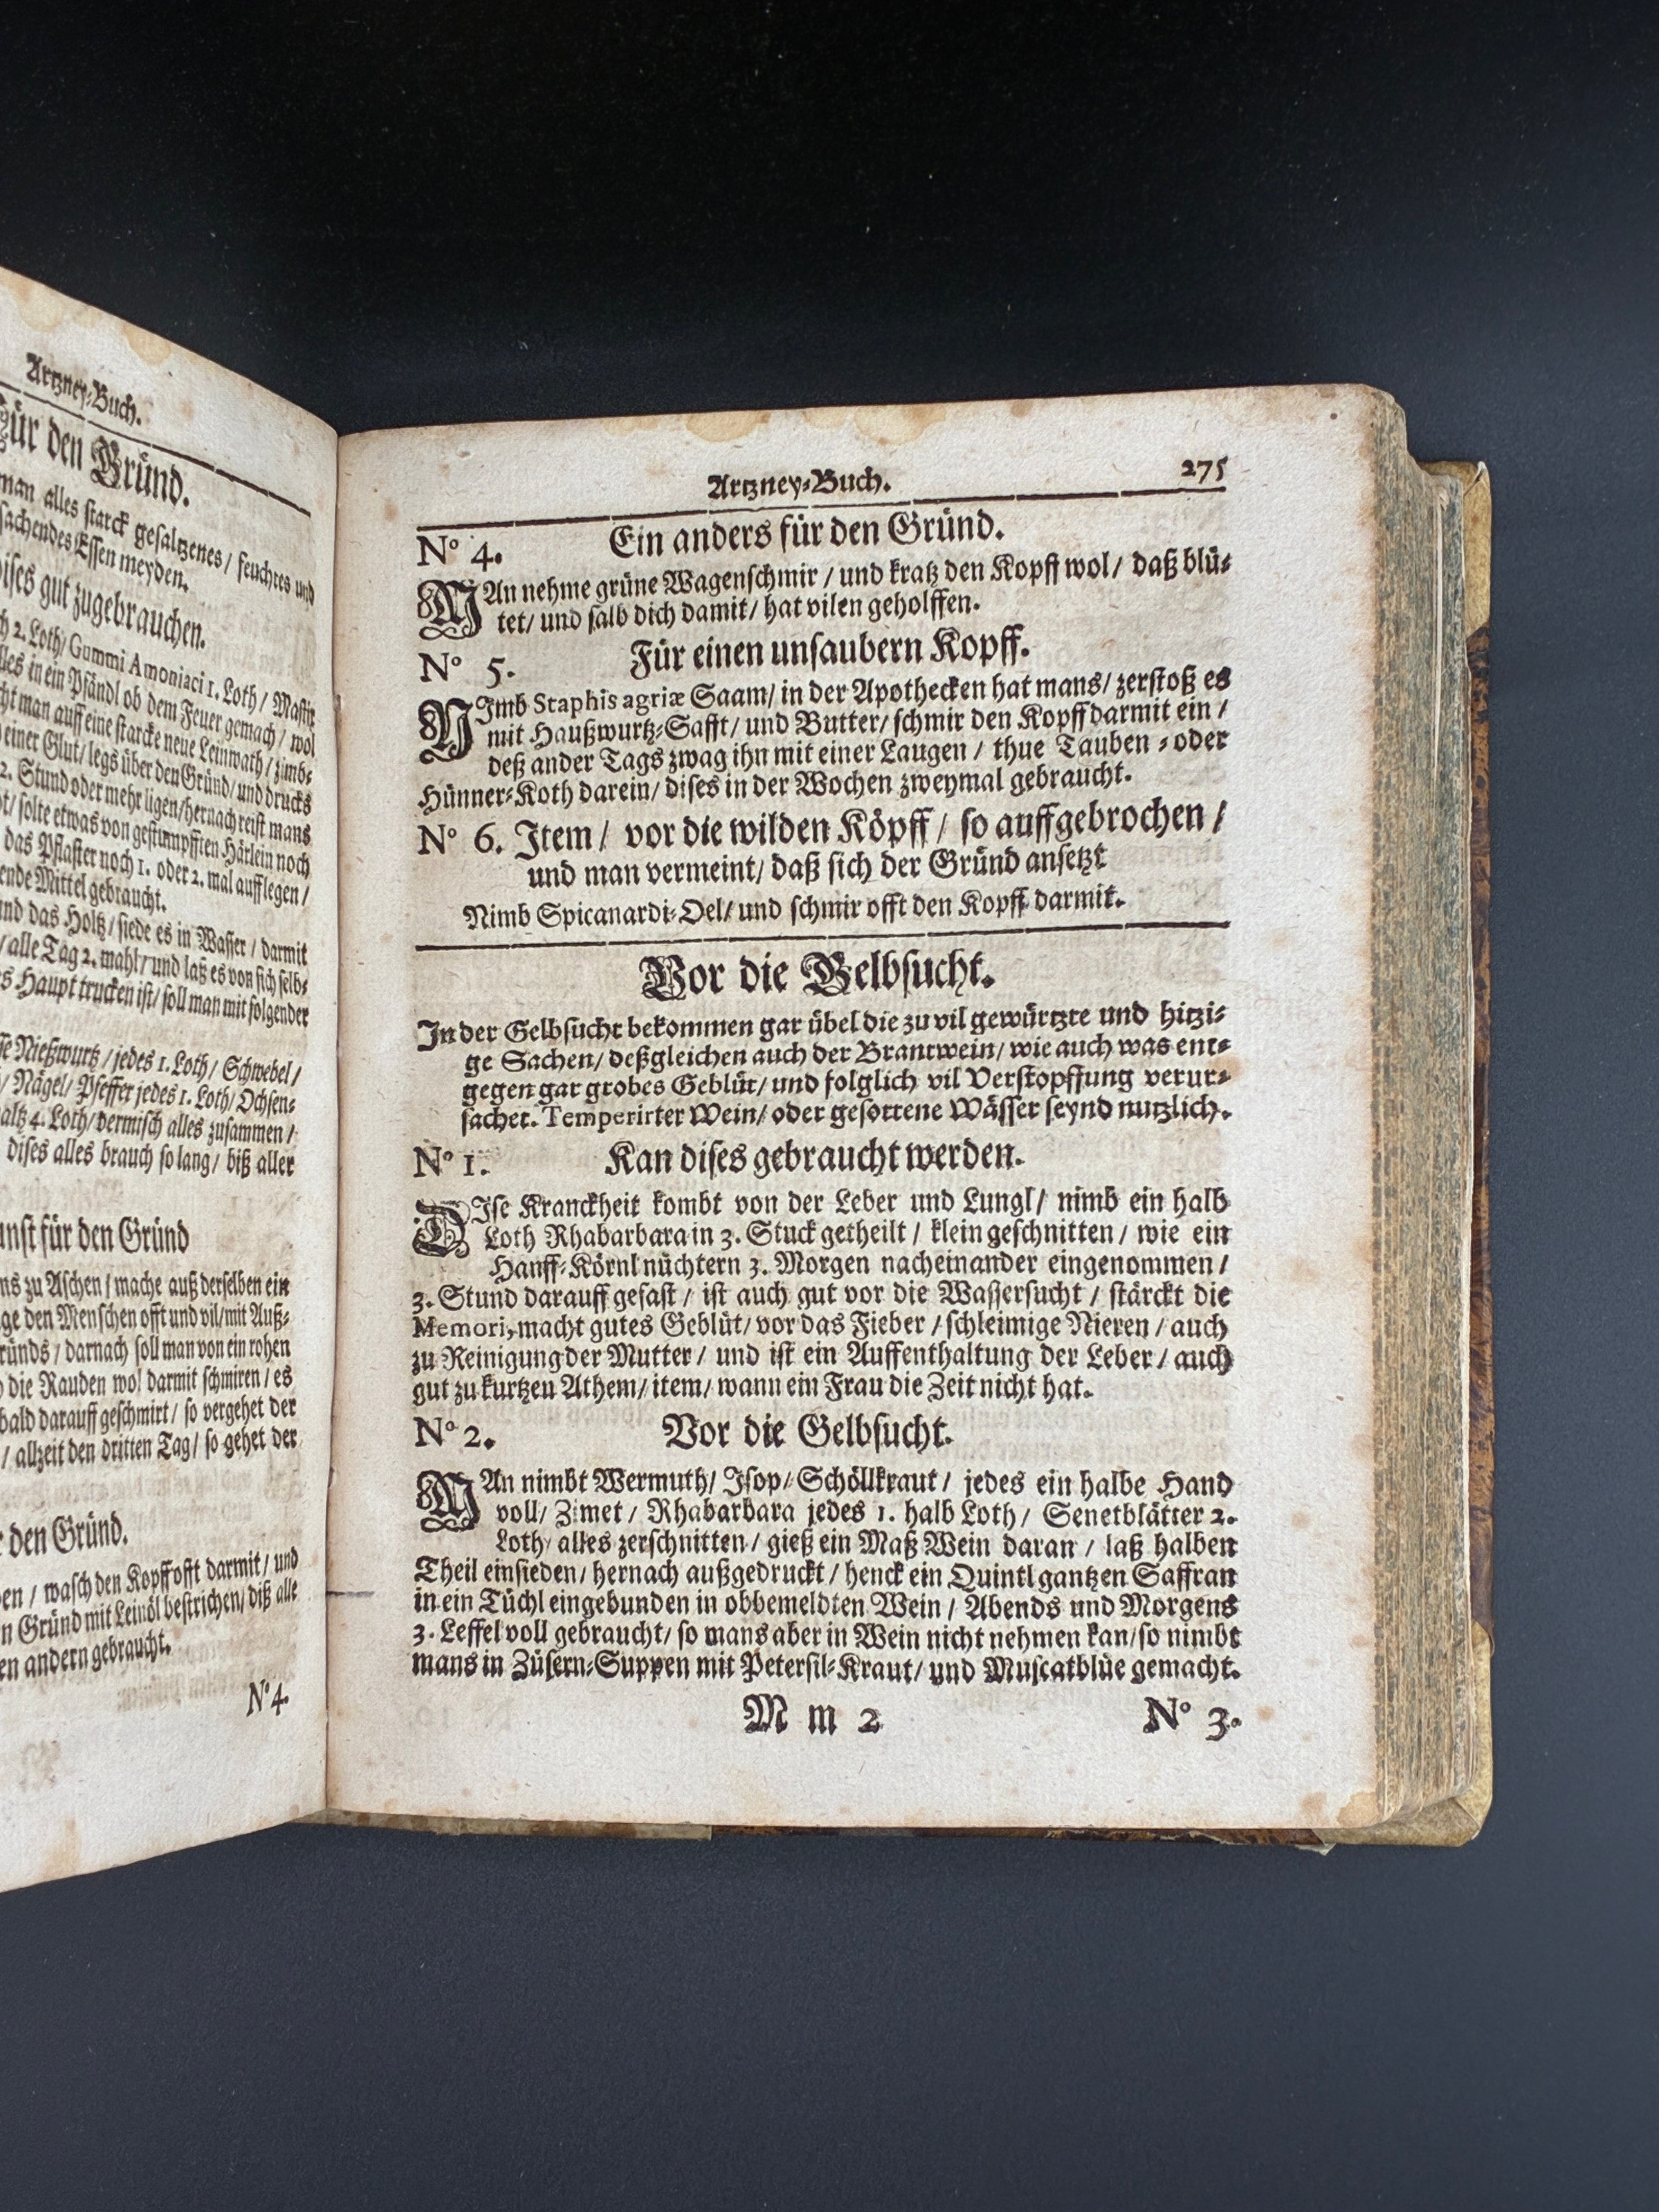 Artzney-Buch.
Für den Gründ.
man alles starck gesaltzenes / feuchtes und
sachendes Essen meyden.
dises gut zugebrauchen.
2. Loth / Gummi Amoniaci 1. Loth / Mastix
alles in ein Pfändl ob dem Feuer gemach / wol
man auff eine starcke neue Leinwath / zimb-
einer Glut / legs über den Gründ / und drucks
2. Stund oder mehr ligen / hernach reist mans
/ solte etwas von gestumpfften Härlein noch
das Pflaster noch 1. oder 2. mal aufflegen /
Mittel gebraucht.
und das Holtz / siede es in Wasser / darmit
/ alle Tag 2. mahl / und laß es von sich selb-
Haupt trucken ist / soll man mit folgender
Nießwurtz / jedes 1. Loth / Schwebel /
/ Nägel / Pfeffer jedes 1. Loth / Ochsen-
4. Loth / vermisch alles zusammen /
dises alles brauch so lang / biß aller
für den Gründ
zu Aschen / mache auß derselben ein
den Menschen offt und vil / mit Auß-
/ darnach soll man von ein rohen
die Rauden wol darmit schmiren / es
bald darauff geschmirt / so vergehet der
/ allzeit den dritten Tag / so gehet der
den Gründ.
/ wasch den Kopff offt darmit / und
Gründ mit Leinöl bestrichen / diß alle
andern gebraucht.
N° 4.
Artzney-Buch. 275
N° 4. Ein anders für den Gründ.
MAn nehme grüne Wagenschmir / und kratz den Kopff wol / daß blü-
tet / und salb dich damit / hat vilen geholffen.
N° 5. Für einen unsaubern Kopff.
NImb Staphis agriæ Saam / in der Apothecken hat mans / zerstoß es
mit Haußwurtz-Safft / und Butter / schmir den Kopff darmit ein /
deß ander Tags zwag ihn mit einer Laugen / thue Tauben - oder
Hünner-Koth darein / dises in der Wochen zweymal gebraucht.
N° 6. Item / vor die wilden Köpff / so auffgebrochen /
und man vermeint / daß sich der Gründ ansetzt
Nimb Spicanardi-Oel / und schmir offt den Kopff darmit.
Vor die Gelbsucht.
In der Gelbsucht bekommen gar übel die zu vil gewürtzte und hitzi-
ge Sachen / deßgleichen auch der Brantwein / wie auch was ent-
gegen gar grobes Geblüt / und folglich vil Verstopffung verur-
sachet. Temperirter Wein / oder gesottene Wässer seynd nutzlich.
N° 1. Kan dises gebraucht werden.
DIse Kranckheit kombt von der Leber und Lungl / nimb ein halb
Loth Rhabarbara in 3. Stuck getheilt / klein geschnitten / wie ein
Hanff-Körnl nüchtern 3. Morgen nacheinander eingenommen /
3. Stund darauff gefast / ist auch gut vor die Wassersucht / stärckt die
Memori, macht gutes Geblüt / vor das Fieber / schleimige Nieren / auch
zu Reinigung der Mutter / und ist ein Auffenthaltung der Leber / auch
gut zu kurtzen Athem / item / wann ein Frau die Zeit nicht hat.
N° 2. Vor die Gelbsucht.
MAn nimbt Wermuth / Isop / Schöllkraut / jedes ein halbe Hand
voll / Zimet / Rhabarbara jedes 1. halb Loth / Senetblätter 2.
Loth / alles zerschnitten / gieß ein Maß Wein daran / laß halben
Theil einsieden / hernach außgedruckt / henck ein Quintl gantzen Saffran
in ein Tüchl eingebunden in obbemeldten Wein / Abends und Morgens
3. Leffel voll gebraucht / so mans aber in Wein nicht nehmen kan / so nimbt
mans in Züsern-Suppen mit Petersil-Kraut / und Muscatblüe gemacht.
M m 2 N° 3.